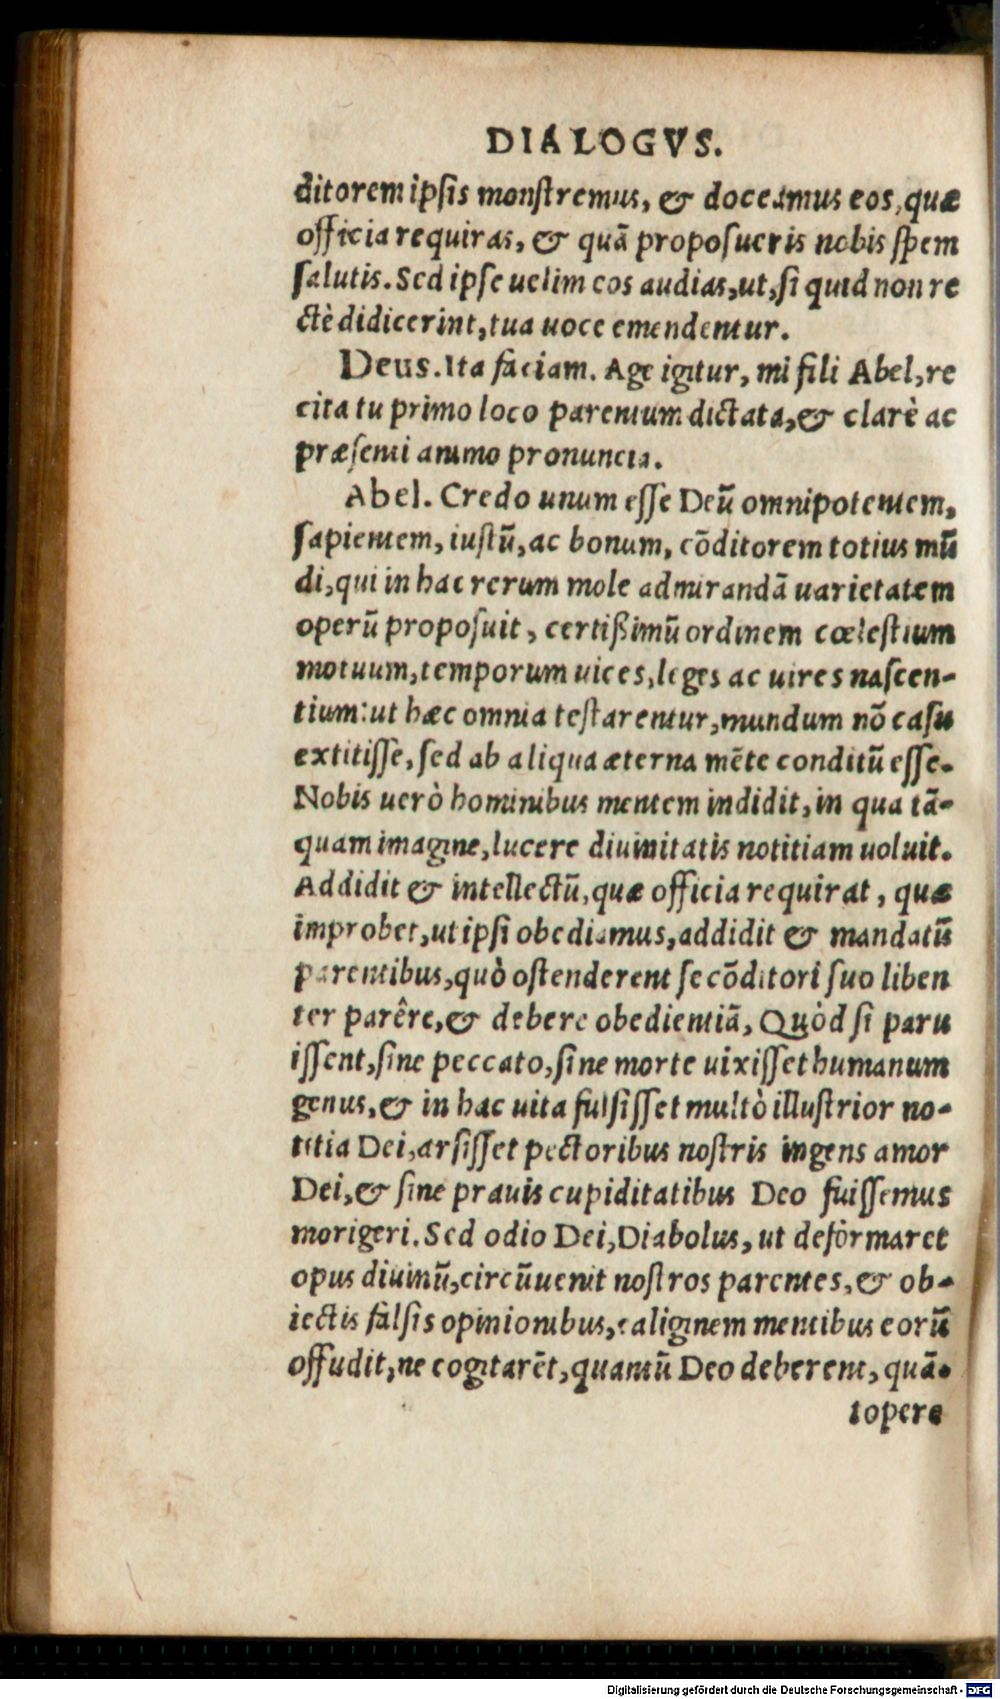 DIALOGVS.
ditorem ipsis monstremus, & doceamus eos, quæ
officia requiras, & quā proposueris nobis spem
salutis. Sed ipse uelim eos audias, ut, si quid non re
ctè didicerint, tua uoce emendentur.
Deus. Ita faciam. Age igitur, mi fili Abel, re
cita tu primo loco parentum dictata, & clarè ac
præsenti animo pronuncia.
Abel. Credo unum esse Deū omnipotentem,
sapientem, iustū, ac bonum, cōditorem totius mū
di, qui in hac rerum mole admirandā uarietatem
operū proposuit, certißimū ordinem cœlestium
motuum, temporum uices, leges ac uires nascen-
tium: ut hæc omnia testarentur, mundum nō casu
extitisse, sed ab aliqua æterna mēte conditū esse.
Nobis uerò hominibus mentem indidit, in qua tā-
quam imagine, lucere diuinitatis notitiam uoluit.
Addidit & intellectū, quæ officia requirat, quæ
improbet, ut ipsi obediamus, addidit & mandatū
parentibus, quò ostenderent se cōditori suo liben
ter parêre, & debere obedientiā, Quòd si paru
issent, sine peccato, sine morte uixisset humanum
genus, & in hac uita fulsisset multò illustrior no-
titia Dei, arsisset pectoribus nostris ingens amor
Dei, & sine prauis cupiditatibus Deo fuissemus
morigeri. Sed odio Dei, Diabolus, ut deformaret
opus diuinū, circūuenit nostros parentes, & ob-
iectis falsis opinionibus, caliginem mentibus eorū
offudit, ne cogitarēt, quantū Deo deberent, quā-
topere
Digitalisierung gefördert durch die Deutsche Forschungsgemeinschaft - DFG